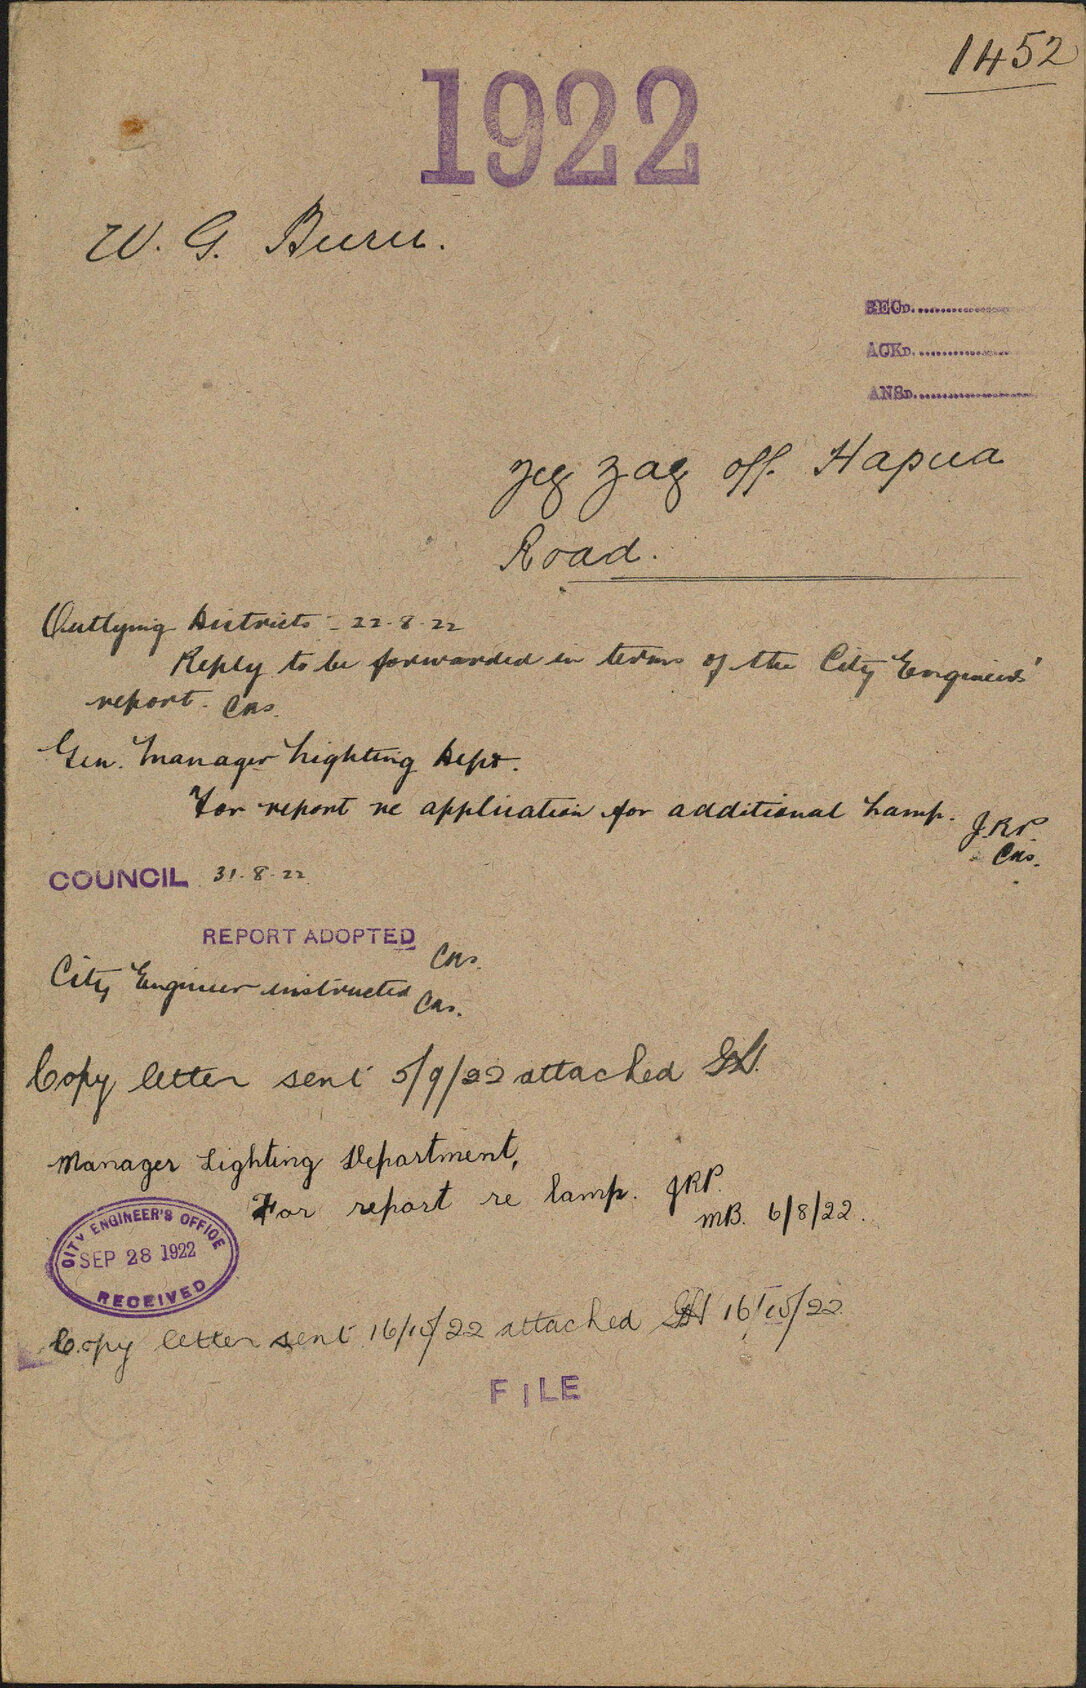 1452
1922
W. G. Burn.
RECD.
ACKD.
ANSD.
Zig Zag off. Hapua
Road.
Outlying Districts - 22.8.22
Reply to be forwarded in terms of the City Engineers'
report.
Gen. Manager Lighting Dept.
For report re application for additional Lamp.
J.R.P.
COUNCIL 31.8.22
REPORT ADOPTED
City Engineer instructed
Copy letter sent 5/9/22 attached
Manager Lighting Department,
For report re lamp. JRP.
MB. 6/8/22.
CITY ENGINEER'S OFFICE
SEP 28 1922
RECEIVED
Copy letter sent 16/10/22 attached 16/10/22
FILE